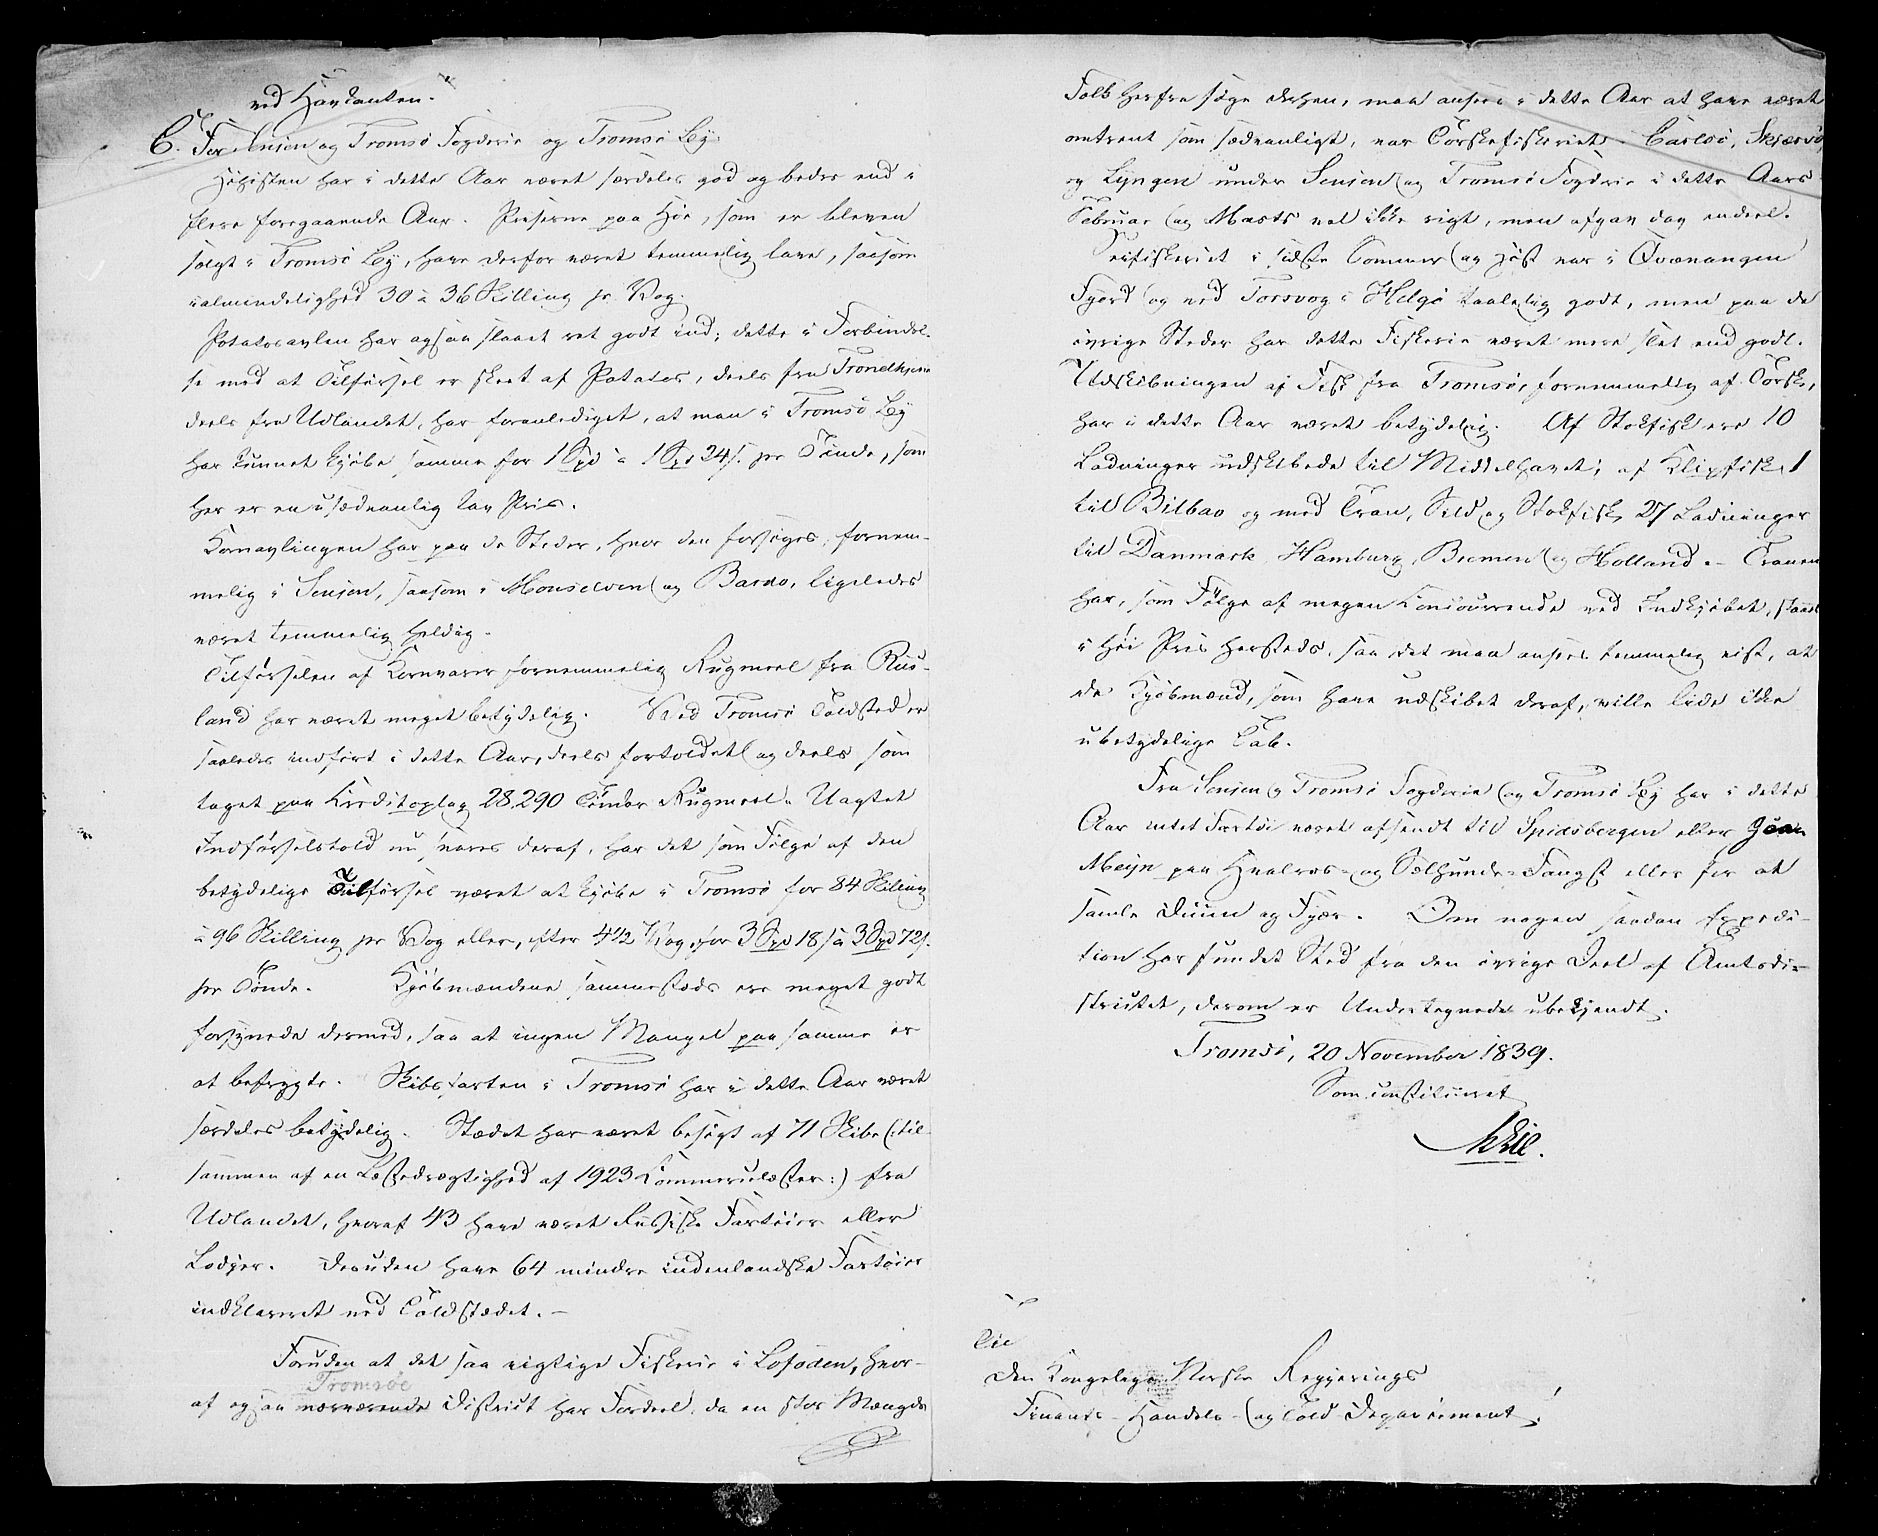 ved Havkanten."
C. For Senjen og Tromsö Fogderie og Tromsö By
Höhösten har i dette Aar været særdeles god og bedre end i
flere foregaaende Aar. Priserne paa Höe, som er bleven
solgt i Tromsö By, have derfor været temmelig lave, saasom
i almindelighed 30 à 36 Skilling pr Vog.
Potatesavlen har ogsaa slaaet ret godt ind; dette i Forbindel-
se med at Tilförsel er skeet af Potates, deels fra Trondhjem
deels fra Udlandet, har foranlediget, at man i Tromsö By
har kunnet kjöbe samme for 1 Spd à 1 Spd 24 s. pr Tönde, som
her er en usædvanlig lav Priis.
Kornavlingen har paa de Steder, hvor den forsöges, fornem-
melig i Senjen, saasom i Maaselven og Bardo, ligeledes
været temmelig heldig.
Tilförselen af Kornvarer fornemmelig Rugmeel fra Rus-
land har været meget betydelig. Ved Tromsö Toldsted er
saaledes indfört i dette Aar, deels fortoldet og deels som
taget paa Kreditoplag 28,290 Tönder Rugmeel. Uagtet
Indförselstold nu svares deraf, har det som Fölge af den
betydelige Tilförsel været at kjöbe i Tromsö for 84 Skilling
à 96 Skilling pr Vog eller, efter 4 1/2 Vog, for 3 Spd 18 s à 3 Spd 72 s.
pr Tönde. Kjöbmændene sammesteds ere meget godt
forsynede dermed, saa at ingen Mangel paa samme er
at befrygte. Skibsfarten i Tromsö har i dette Aar været
særdeles betydelig. Stædet har været besögt af 71 Skibe (: til-
sammen af en Læstedrægtighed af 1923 Commercelæster:) fra
Udlandet, hvoraf 43 have været Russiske Fartöier eller
Lodjer. Desuden have 64 mindre indenlandske Fartöier
indklareret ved Toldstædet. –
Foruden at det saa vigtige Fiskerie i Lofoden, hvor-
Tromsöe
af ogsaa nærværende District har Fordeel, da en stor Mængde
Folk herfra söge derhen, maa ansees i dette Aar at have været
omtrent som sædvanligt, var Torskefiskeriet i Carlsö, Skjærvö
og Lyngen under Senjen og Tromsö Fogderie i dette Aars
Februar og Marts vel ikke rigt, men afgav dog endeel.
Seifiskeriet i sidste Sommer og Höst var i Qvænangen
Fjord og ved Torsvog i Helgö taalelig godt, men paa de
övrige Steder har dette Fiskerie været mere slet end godt.
Udskibningen af Fisk fra Tromsö, fornemmelig af Torsk,
har i dette Aar været betydelig. Af Stokfisk ere 10
Ladninger udskibede til Middelhavet, af Klipfisk 1
til Bilbao og med Tran, Sild og Stokfisk 27 Ladninger
til Danmark, Hamburg, Bremen og Holland. – Tranen
har, som Fölge af megen Concurrence ved Indkjöbet, staaet
i höi Priis hersteds, saa det maa ansees temmelig vist, at
de Kjöbmænd, som have udskibet deraf, ville lide ikke
ubetydelige Tab.
Fra Senjen og Tromsö Fogderie og Tromsö By har i dette
Aar intet Fartöi været afsendt til Spidsbergen eller Jean
Meyn paa Hvalros- og Sælhunde-Fangst eller for at
samle Duun og Fjær. Om nogen saadan Expedi-
tion har fundet Sted fra den övrige Deel af Amtsdi-
strictet, derom er Undertegnede ubekjendt.
Tromsö, 20 November 1839.
Som constitueret
Til
Den Kongelige Norske Regjerings
Finants- Handels- og Told-Departement!